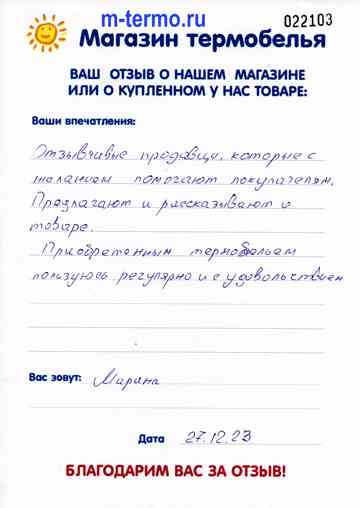 m-termo.ru
022103
Магазин термобелья
ВАШ ОТЗЫВ О НАШЕМ МАГАЗИНЕ
ИЛИ О КУПЛЕННОМ У НАС ТОВАРЕ:
Ваши впечатления:
Отзывчивые продавцы, которые с
желанием помогают покупателям.
Предлагают и рассказывают о
товаре.
Приобретенным термобельем
пользуюсь регулярно и с удовольствием
Вас зовут: Марина
Дата 27.12.23
БЛАГОДАРИМ ВАС ЗА ОТЗЫВ!